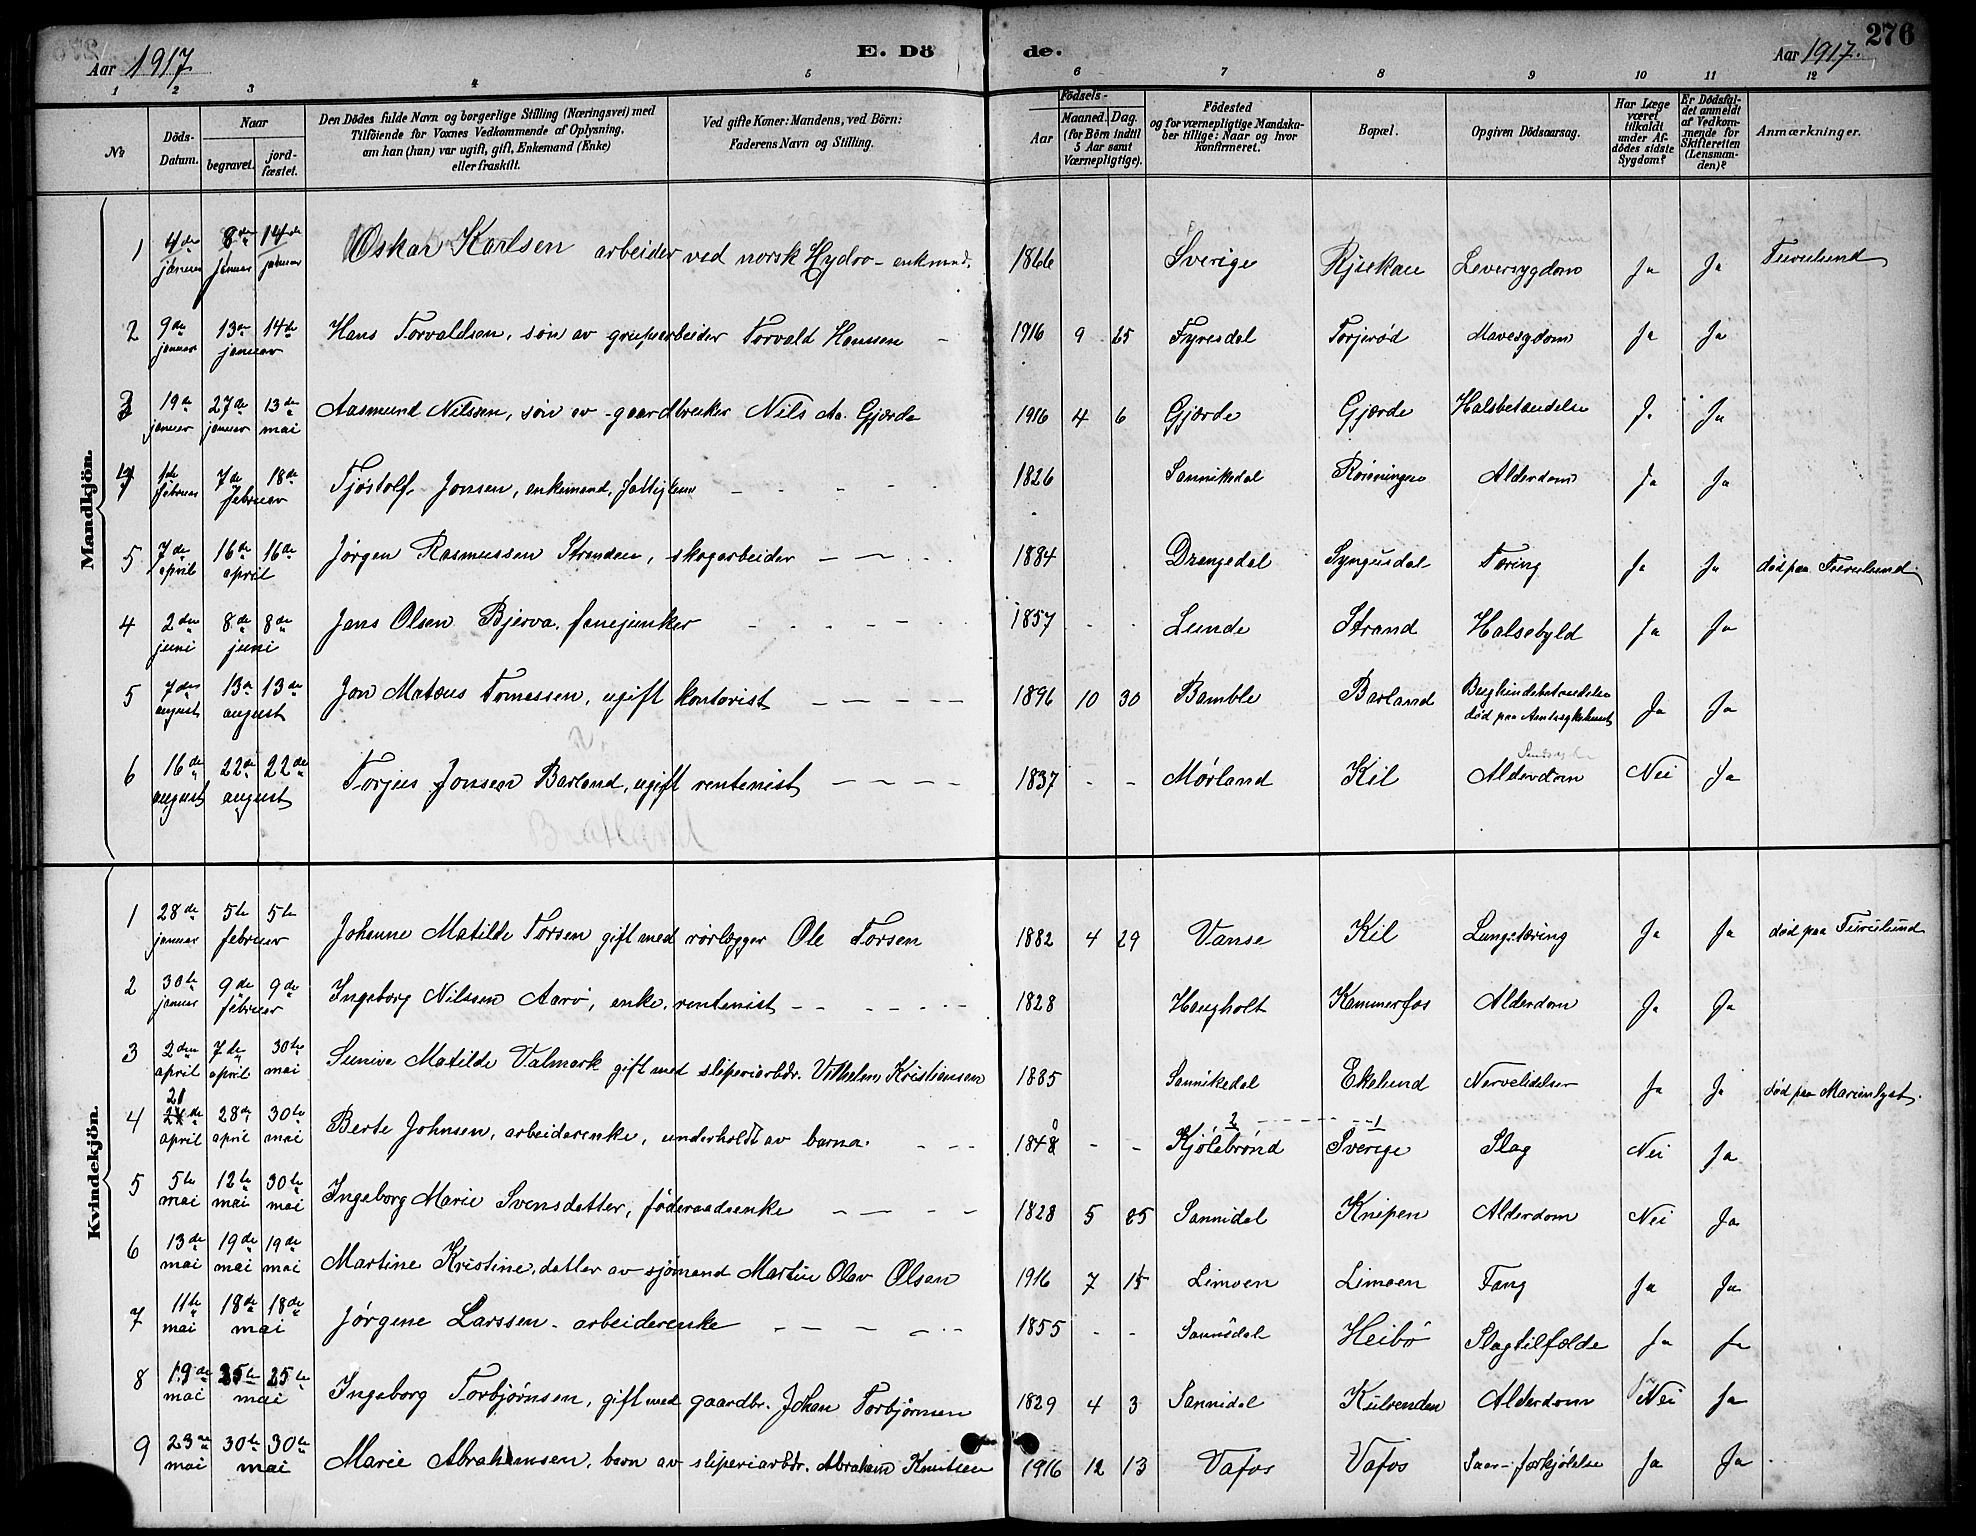 Aar 1917 E. Dö de. Aar 1917. 276
1 2 3 4 5 6 7 8 9 10 11 12
№
Döds-Datum.
Naar
begravet. jord-fæstet.
Den Dödes fulde Navn og borgerlige Stilling (Næringsvei) med
Tilföiende for Voxnes Vedkommende af Oplysning,
om han (hun) var ugift, gift, Enkemand (Enke)
eller fraskilt.
Ved gifte Koner: Mandens, ved Börn:
Faderens Navn og Stilling.
Födsels-
Aar
Maaned. Dag.
(for Börn indtil
5 Aar samt
Værnepligtige).
Födested
og for værnepligtige Mandska-
ber tillige: Naar og hvor
konfirmeret.
Bopæl.
Opgiven Dödsaarsag.
Har Læge
været
tilkaldt
under Af-
dödes sidste
Sygdom?
Er Dödsfal-
det anmeldt
af Vedkom-
mende for
Skifteretten
(Lensman-
den)?
Anmærkninger.
Mandkjön.
1 4de januar 8de januar 14de januar Oskar Karlsen arbeider ved norsk Hydro - enkmand. 1866 Sverige Rjukan Leversygdom Ja Ja Furulund
2 9de januar 13de 14de januar Hans Torvaldsen, søn av grubearbeider Torvald Hansen 1916 9 25 Fyresdal Torjerød Mavesygdom Ja Ja
3 19de januar 27de januar 13de mai Aasmund Nilssen, søn av gaardbruker Nils Aa. Gjærde 1916 4 6 Gjærde Gjærde Halsbetændelse Ja Ja
4 1de februar 7de 18de februar Tjøstolf Jonsen, enkemand, fattiglem 1826 Sannikedal Rønningen Alderdom Ja Ja
5 7de april 16de 16de april Jørgen Rasmussen Stranden, skogarbeider 1884 Drangedal Syngusdal Tæring Ja Ja død paa Furulund.
4 2den juni 8de 8de juni Jens Olsen Bjerva, fanejunker 1857 Lunde Strand Halsebyld Ja Ja
5 7de august 13de 13de august Jon Matæus Tomassen, ugift kontorist 1896 10 30 Bamble Barland Bughindebetændelse død paa Amtssykehuset Ja Ja
6 16de august 22de 22de august Torjus Jonsen Barland, ugift rentenist 1837 Mørland Kil Alderdom Nei Ja
Kvindekjön.
1 28de januar 5te 5te februar Johanne Matilde Torsen gift med rørlægger Ole Torsen 1882 4 29 Vanse Kil Lungetæring Ja Ja død paa Furulund
2 30te januar 9de 9de februar Ingeborg Nilssen Aarø, enke, rentenist 1828 Haugholt Kammerfos Alderdom Ja Ja
3 2den april 7de april 30te mai Suniva Matilde Valmark gift med sliperiarbdr. Vilhelm Kristiansen 1885 Sannikedal Ekelund Nervelidelser Ja Ja død paa Marienlyst.
4 21 april 28de april 30te mai Berte Johnsen, arbeiderenke, underholdt av barna. 1848 Kjølebrønd Sverige Slag Nei Ja
5 5te mai 12te mai 30te mai Ingeborg Marie Svensdatter, føderaadsenke 1828 5 25 Sannidal Knipen Alderdom Nei Ja
6 13de mai 19de mai 19de mai Martine Kristine, datter av sjømand Martin Olav Olsen 1916 7 15 Limoen Limoen Fang Ja Ja
7 11te mai 18de 18de mai Jørgene Larssen - arbeiderenke 1855 Sannidal Heibø Slagtilfælde Ja Ja
8 19de mai 25te 25te mai Ingeborg Torbjørnsen, gift med gaardbr. Johan Torbjørnsen 1829 4 3 Sannidal Kurenden Alderdom Nei Ja
9 23de mai 30te 30te mai Marie Abrahamsen, barn av sliperiarbdr. Abraham Knutsen 1916 12 13 Vafos Vafos forkjølelse Ja Ja